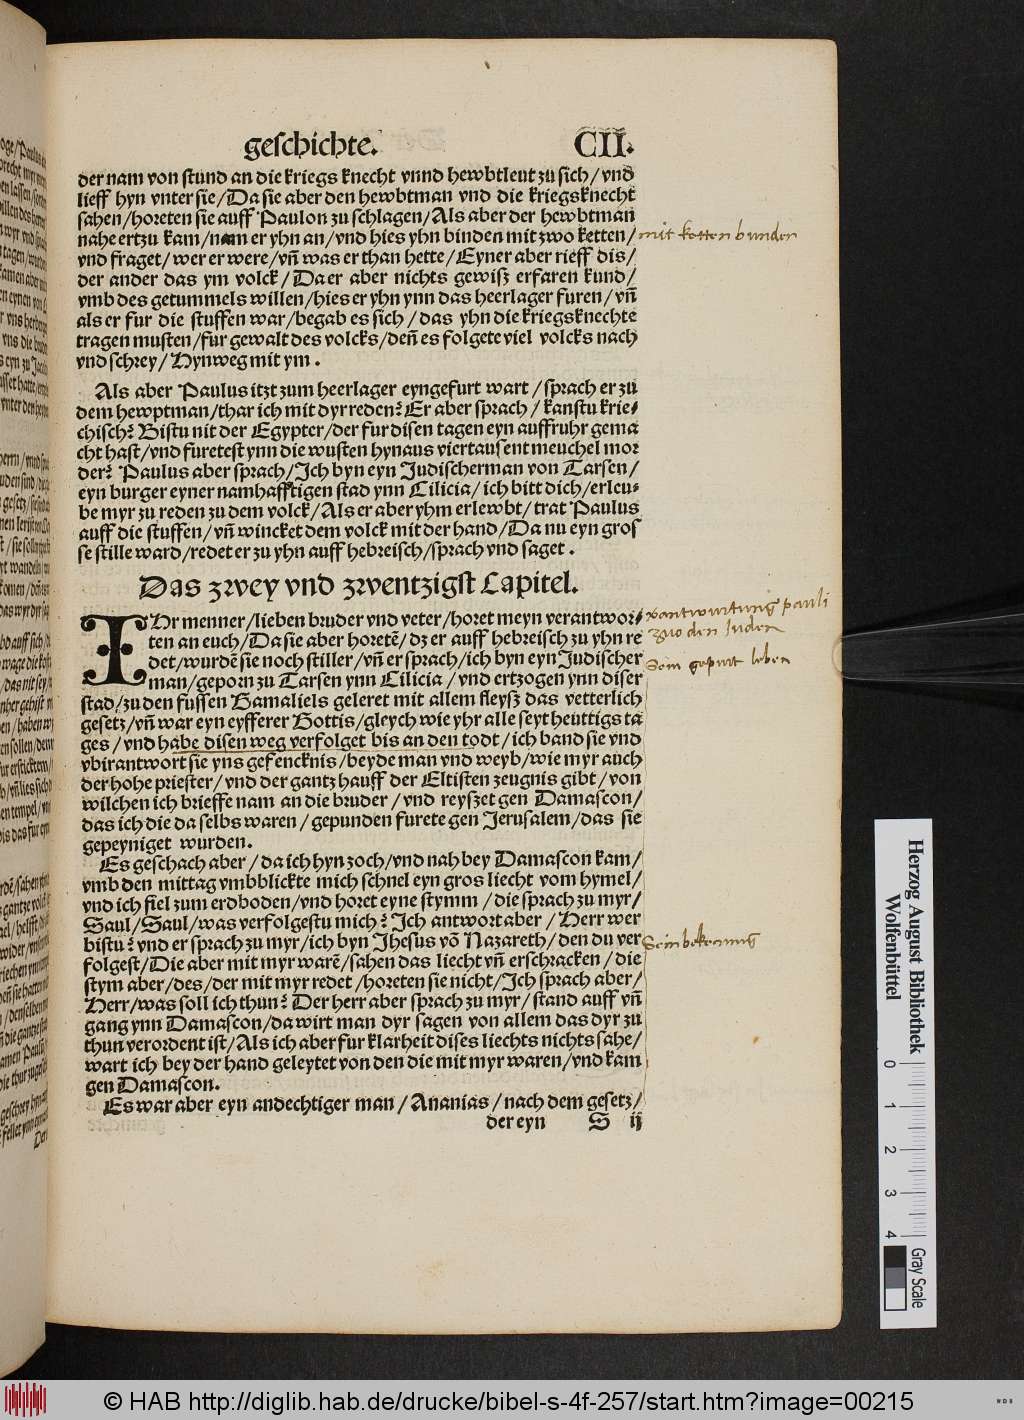 geschichte. CII.
der nam von stund an die kriegs knecht vnnd hewbtleut zu sich/ vnd
lieff hyn vnter sie/ Da sie aber den hewbtman vnd die kriegsknecht
sahen/ horeten sie auff Paulon zu schlagen/ Als aber der hewbtman
nahe ertzu kam/ nam er yhn an/ vnd hies yhn binden mit zwo ketten/
mit ketten bunden
vnd fraget/ wer er were/ vñ was er than hette/ Eyner aber rieff dis/
der ander das ym volck/ Da er aber nichts gewisz erfaren kund/
vmb des getummels willen/ hies er yhn ynn das heerlager furen/ vñ
als er fur die stuffen war/ begab es sich/ das yhn die kriegsknechte
tragen musten/ fur gewalt des volcks/ deñ es folgete viel volcks nach
vnd schrey/ Hynweg mit ym.
Als aber Paulus itzt zum heerlager eyngefurt wart/ sprach er zu
dem hewptman/ thar ich mit dyr reden? Er aber sprach/ kanstu krie-
chisch? Bistu nit der Egypter/ der fur disen tagen eyn auffruhr gema
cht hast/ vnd furetest ynn die wusten hynaus viertausent meuchel mor
der? Paulus aber sprach/ Ich byn eyn Judischer man von Tarsen/
eyn burger eyner namhafftigen stad ynn Cilicia/ ich bitt dich/ erleu-
be myr zu reden zu dem volck/ Als er aber yhm erlewbt/ trat Paulus
auff die stuffen/ vñ wincket dem volck mit der hand/ Da nu eyn gros
se stille ward/ redet er zu yhn auff hebreisch/ sprach vnd saget.
Das zwey vnd zwentzigst Capitel.
IHr menner/ lieben bruder vnd veter/ horet meyn verantwor-
vantwurtung pauli
zuo den Juden
ten an euch/ Da sie aber horetẽ/ dz er auff hebreisch zu yhn re
det/ wurdẽ sie noch stiller/ vñ er sprach/ ich byn eyn Judischer
Sein gepurt leben
man/ geporn zu Tarsen ynn Cilicia/ vnd ertzogen ynn diser
stad/ zu den fussen Gamaliels geleret mit allem fleysz das vetterlich
gesetz/ vñ war eyn eyfferer Gottis/ gleych wie yhr alle seyt heuttigs ta
ges/ vnd habe disen weg verfolget bis an den todt/ ich band sie vnd
vbirantwort sie yns gefencknis/ beyde man vnd weyb/ wie myr auch
der hohe priester/ vnd der gantz hauff der Eltisten zeugnis gibt/ von
wilchen ich brieffe nam an die bruder/ vnd reyszet gen Damascon/
das ich die da selbs waren/ gepunden furete gen Jerusalem/ das sie
gepeyniget wurden.
Es geschach aber/ da ich hyn zoch/ vnd nah bey Damascon kam/
vmb den mittag vmbblickte mich schnel eyn gros liecht vom hymel/
vnd ich fiel zum erdboden/ vnd horet eyne stymm/ die sprach zu myr/
Saul/ Saul/ was verfolgestu mich? Ich antwort aber/ Herr wer
bistu? vnd er sprach zu myr/ ich byn Jhesus võ Nazareth/ den du ver
Sein bekerung
folgest/ Die aber mit myr warẽ/ sahen das liecht vñ erschracken/ die
stym aber/ des/ der mit myr redet/ horeten sie nicht/ Ich sprach aber/
Herr/ was soll ich thun? Der herr aber sprach zu myr/ stand auff vñ
gang ynn Damascon/ da wirt man dyr sagen von allem das dyr zu
thun verordent ist/ Als ich aber fur klarheit dises liechts nichts sahe/
wart ich bey der hand geleytet von den die mit myr waren/ vnd kam
gen Damascon.
Es war aber eyn andechtiger man/ Ananias/ nach dem gesetz/
der eyn S ij
Herzog August Bibliothek
Wolfenbüttel
0 1 2 3 4
Gray Scale
© HAB http://diglib.hab.de/drucke/bibel-s-4f-257/start.htm?image=00215